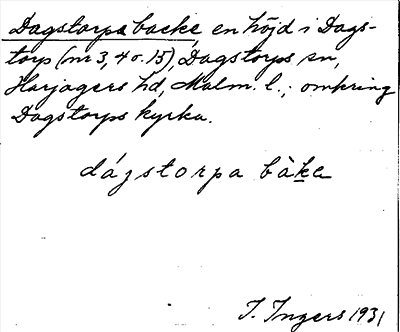 Dagstorpa backe, en höjd i Dags-
torp (nr 3, 4 o. 15), Dagstorps sn,
Harjagers hd, Malm. l.; omkring
Dagstorps kyrka.
dágstorpa bàke
I. Ingers 1931